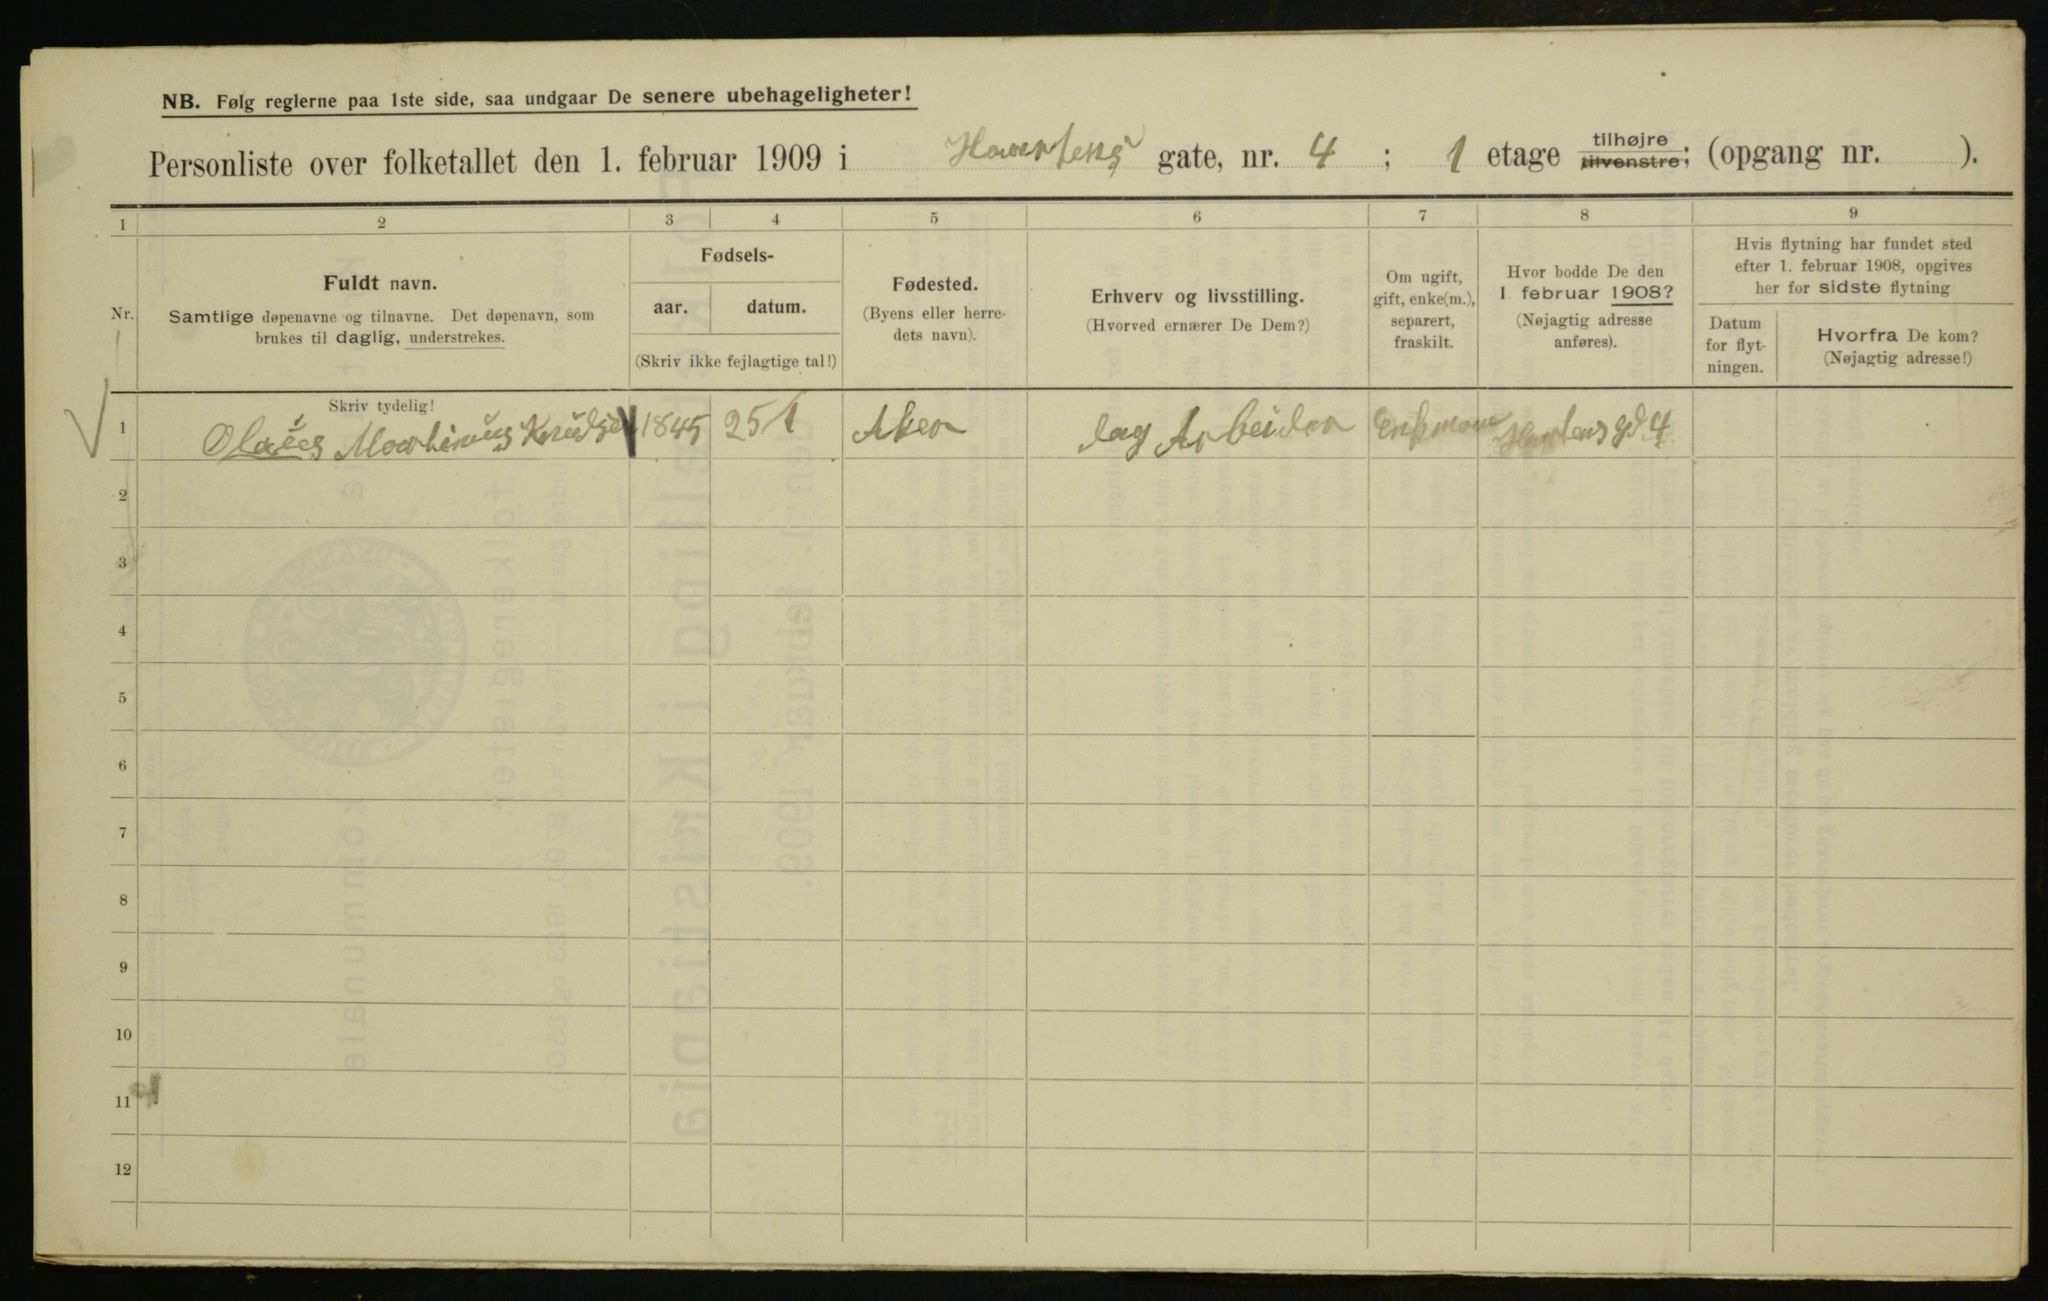 NB. Følg reglerne paa 1ste side, saa undgaar De senere ubehageligheter!
Personliste over folketallet den 1. februar 1909 i gate, nr. 4 ; 1 etage tilhøjre tilvenstre; (opgang nr. ).
1 2 3 4 5 6 7 8 9
Nr.
Fuldt navn.
Samtlige døpenavne og tilnavne. Det døpenavn, som
brukes til daglig, understrekes.
Fødsels-
aar.
datum.
(Skriv ikke fejlagtige tal!)
Fødested.
(Byens eller herre-
dets navn).
Erhverv og livsstilling.
(Hvorved ernærer De Dem?)
Om ugift,
gift, enke(m.),
separert,
fraskilt.
Hvor bodde De den
1 februar 1908?
(Nøjagtig adresse
anføres).
Hvis flytning har fundet sted
efter 1. februar 1908, opgives
her for sidste flytning
Datum
for flyt-
ningen.
Hvorfra De kom?
(Nøjagtig adresse!)
Skriv tydelig!
1 Olaus Marhinius Knudsen 1845 25 1 Aker dag Arbeider Enkmane gd 4
2
3
4
5
6
7
8
9
10
11
12